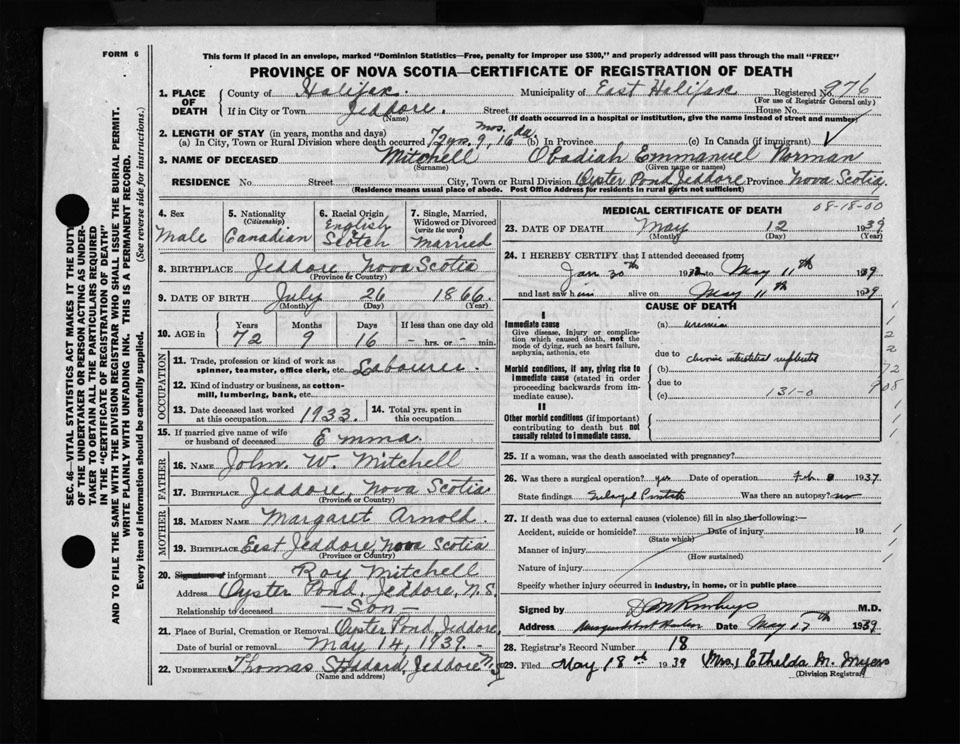 FORM 6
This form if placed in an envelope, marked "Dominion Statistics—Free, penalty for improper use $300," and properly addressed will pass through the mail "FREE"
PROVINCE OF NOVA SCOTIA—CERTIFICATE OF REGISTRATION OF DEATH
1. PLACE OF DEATH
County of Halifax. Municipality of East Halifax Registered No. 976
(For use of Registrar General only)
If in City or Town Jeddore. Street House No.
(Name) (If death occurred in a hospital or institution, give the name instead of street and number)
2. LENGTH OF STAY (in years, months and days)
(a) In City, Town or Rural Division where death occurred 72 yrs. 9 mos. 16 da. (b) In Province (c) In Canada (if immigrant)
3. NAME OF DECEASED Mitchell Obadiah Emmanuel Norman
(Surname) (Given name or names)
RESIDENCE No. Street City, Town or Rural Division Oyster Pond Jeddore Province Nova Scotia.
(Residence means usual place of abode. Post Office Address for residents in rural parts not sufficient)
4. Sex Male
5. Nationality (Citizenship) Canadian
6. Racial Origin English Scotch
7. Single, Married, Widowed or Divorced (write the word) Married
8. BIRTHPLACE Jeddore, Nova Scotia
(Province or Country)
9. DATE OF BIRTH July 26 1866
(Month) (Day) (Year)
10. AGE in Years 72 Months 9 Days 16 If less than one day old - hrs. or - min.
OCCUPATION
11. Trade, profession or kind of work as spinner, teamster, office clerk, etc. Labourer.
12. Kind of industry or business, as cotton-mill, lumbering, bank, etc.
13. Date deceased last worked at this occupation 1933.
14. Total yrs. spent in this occupation
15. If married give name of wife or husband of deceased Emma.
FATHER
16. NAME John W. Mitchell
17. BIRTHPLACE Jeddore, Nova Scotia
(Province or Country)
MOTHER
18. MAIDEN NAME Margaret Arnold.
19. BIRTHPLACE East Jeddore, Nova Scotia
(Province or Country)
20. Signature of informant Roy Mitchell
Address Oyster Pond, Jeddore, N.S.
Relationship to deceased —Son—
21. Place of Burial, Cremation or Removal Oyster Pond, Jeddore,
Date of burial or removal May 14, 1939.-
22. UNDERTAKER Thomas Stoddard, Jeddore N.S.
(Name and address)
08-18-00
MEDICAL CERTIFICATE OF DEATH
23. DATE OF DEATH May 12 1939
(Month) (Day) (Year)
24. I HEREBY CERTIFY that I attended deceased from
Jan 30th to May 11th 1939
and last saw him alive on May 11th 1939
CAUSE OF DEATH
I
Immediate cause
Give disease, injury or complication which caused death, not the mode of dying, such as heart failure, asphyxia, asthenia, etc
(a) uremia
due to chronic interstitial nephritis
Morbid conditions, if any, giving rise to immediate cause (stated in order proceeding backwards from immediate cause).
(b)
due to
(c) 131-0
II
Other morbid conditions (if important) contributing to death but not causally related to immediate cause.
1
2
2
72
908
1
25. If a woman, was the death associated with pregnancy?
26. Was there a surgical operation? yes Date of operation Feb. 8 1937
State findings Enlarged Prostate Was there an autopsy? no
27. If death was due to external causes (violence) fill in also the following:—
Accident, suicide or homicide? Date of injury 19
(State which)
Manner of injury
(How sustained)
Nature of injury
Specify whether injury occurred in industry, in home, or in public place
1
1
1
Signed by M.D.
Address Musquodoboit Harbor Date May 17th 1939
28. Registrar's Record Number 18
29. Filed May 18th 1939 Mrs. Ethelda M. Myers
(Division Registrar)
SEC. 46—VITAL STATISTICS ACT MAKES IT THE DUTY
OF THE UNDERTAKER OR PERSON ACTING AS UNDER-
TAKER TO OBTAIN ALL THE PARTICULARS REQUIRED
IN THE "CERTIFICATE OF REGISTRATION OF DEATH"
AND TO FILE THE SAME WITH THE DIVISION REGISTRAR WHO SHALL ISSUE THE BURIAL PERMIT.
WRITE PLAINLY WITH UNFADING INK. THIS IS A PERMANENT RECORD.
Every item of information should be carefully supplied. (See reverse side for instructions.)